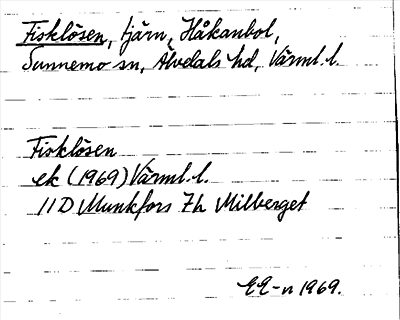 Fisklösen, tjärn, Håkanbol,
Sunnemo sn, Älvdals hd, Värml. l.
Fisklösen
ek (1969) Värml. l.
11D Munkfors 7h Milberget
EE-n 1969.